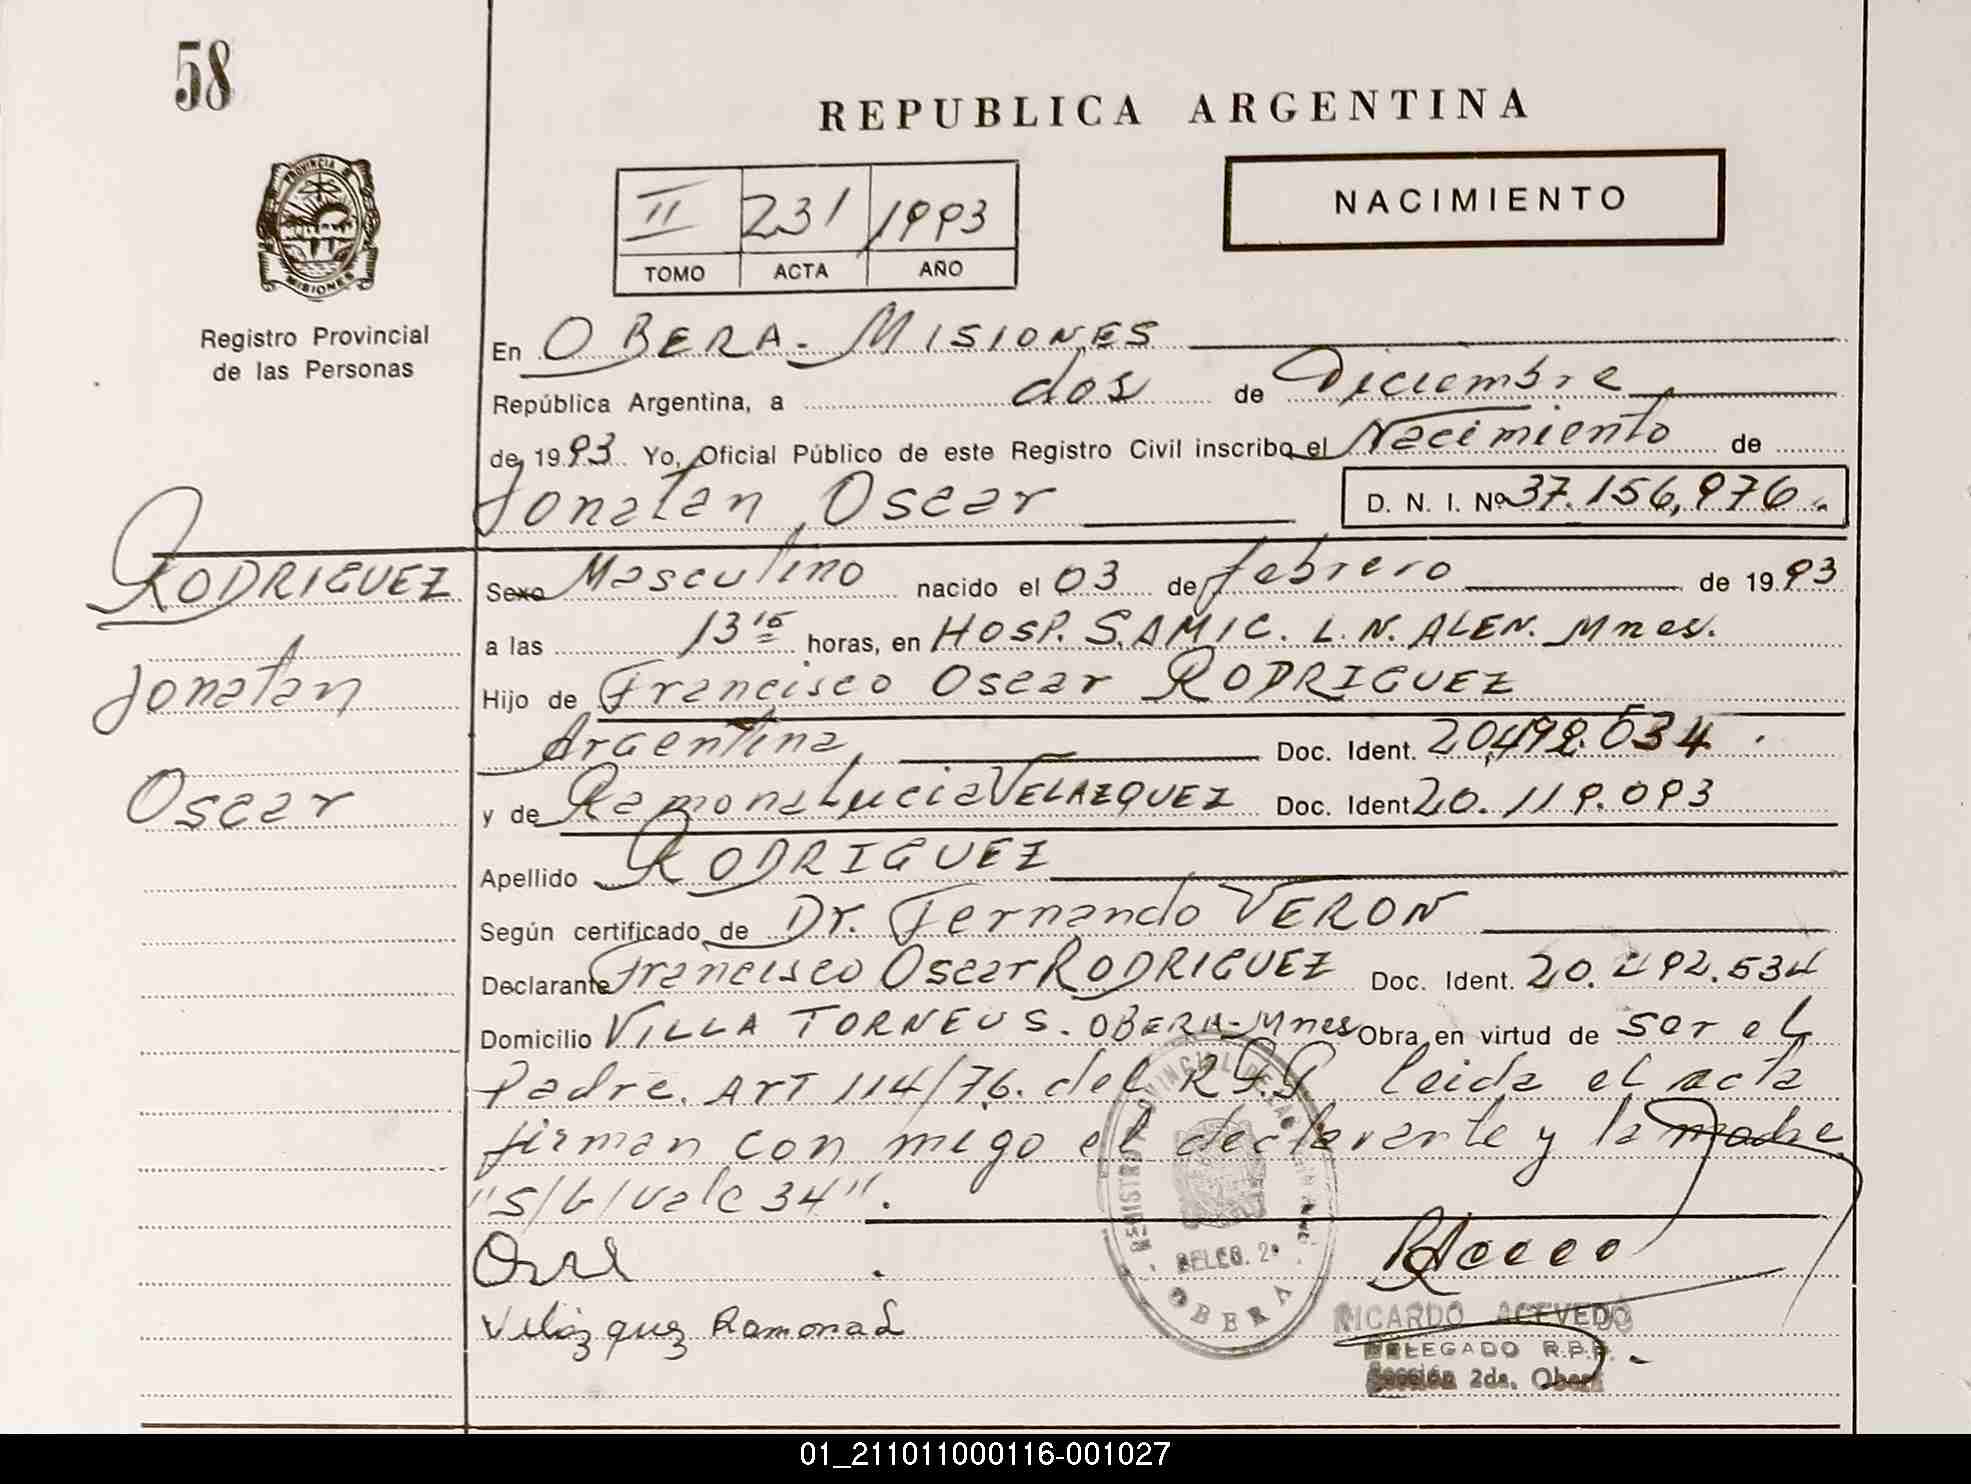 58
REPUBLICA ARGENTINA
II 231 1993
TOMO ACTA AÑO
NACIMIENTO
PROVINCIA DE
MISIONES
Registro Provincial
de las Personas
En OBERA - MISIONES
República Argentina, a dos de Diciembre
de 1993 Yo, Oficial Público de este Registro Civil inscribo el Nacimiento de
Jonatan Oscar D. N. I. Nº 37.156,976.
RODRIGUEZ
Jonatan
Oscar
Sexo Masculino nacido el 03 de febrero de 1993
a las 13 15 horas, en HOSP. SAMIC. L.N. ALEN. Mnes.
Hijo de Francisco Oscar RODRIGUEZ
Argentina Doc. Ident. 20,492.534.
y de Ramona Lucia VELAZQUEZ Doc. Ident. 20.119.093
Apellido RODRIGUEZ
Según certificado de Dr. Fernando VERON
Declarante Francisco Oscar RODRIGUEZ Doc. Ident. 20.492.534
Domicilio VILLA TORNEUS. OBERA - Mnes Obra en virtud de ser el
Padre. ART 114/76. del leida el acta
firman con migo el declarante y la madre
"S/b/vale 34".
Velázquez Ramona L
REGISTRO PROVINCIAL DE LAS
DELEG. 2ª
OBERA
RICARDO ACEVEDO
DELEGADO R.P.P.
Sección 2da. Oberá
01_211011000116-001027